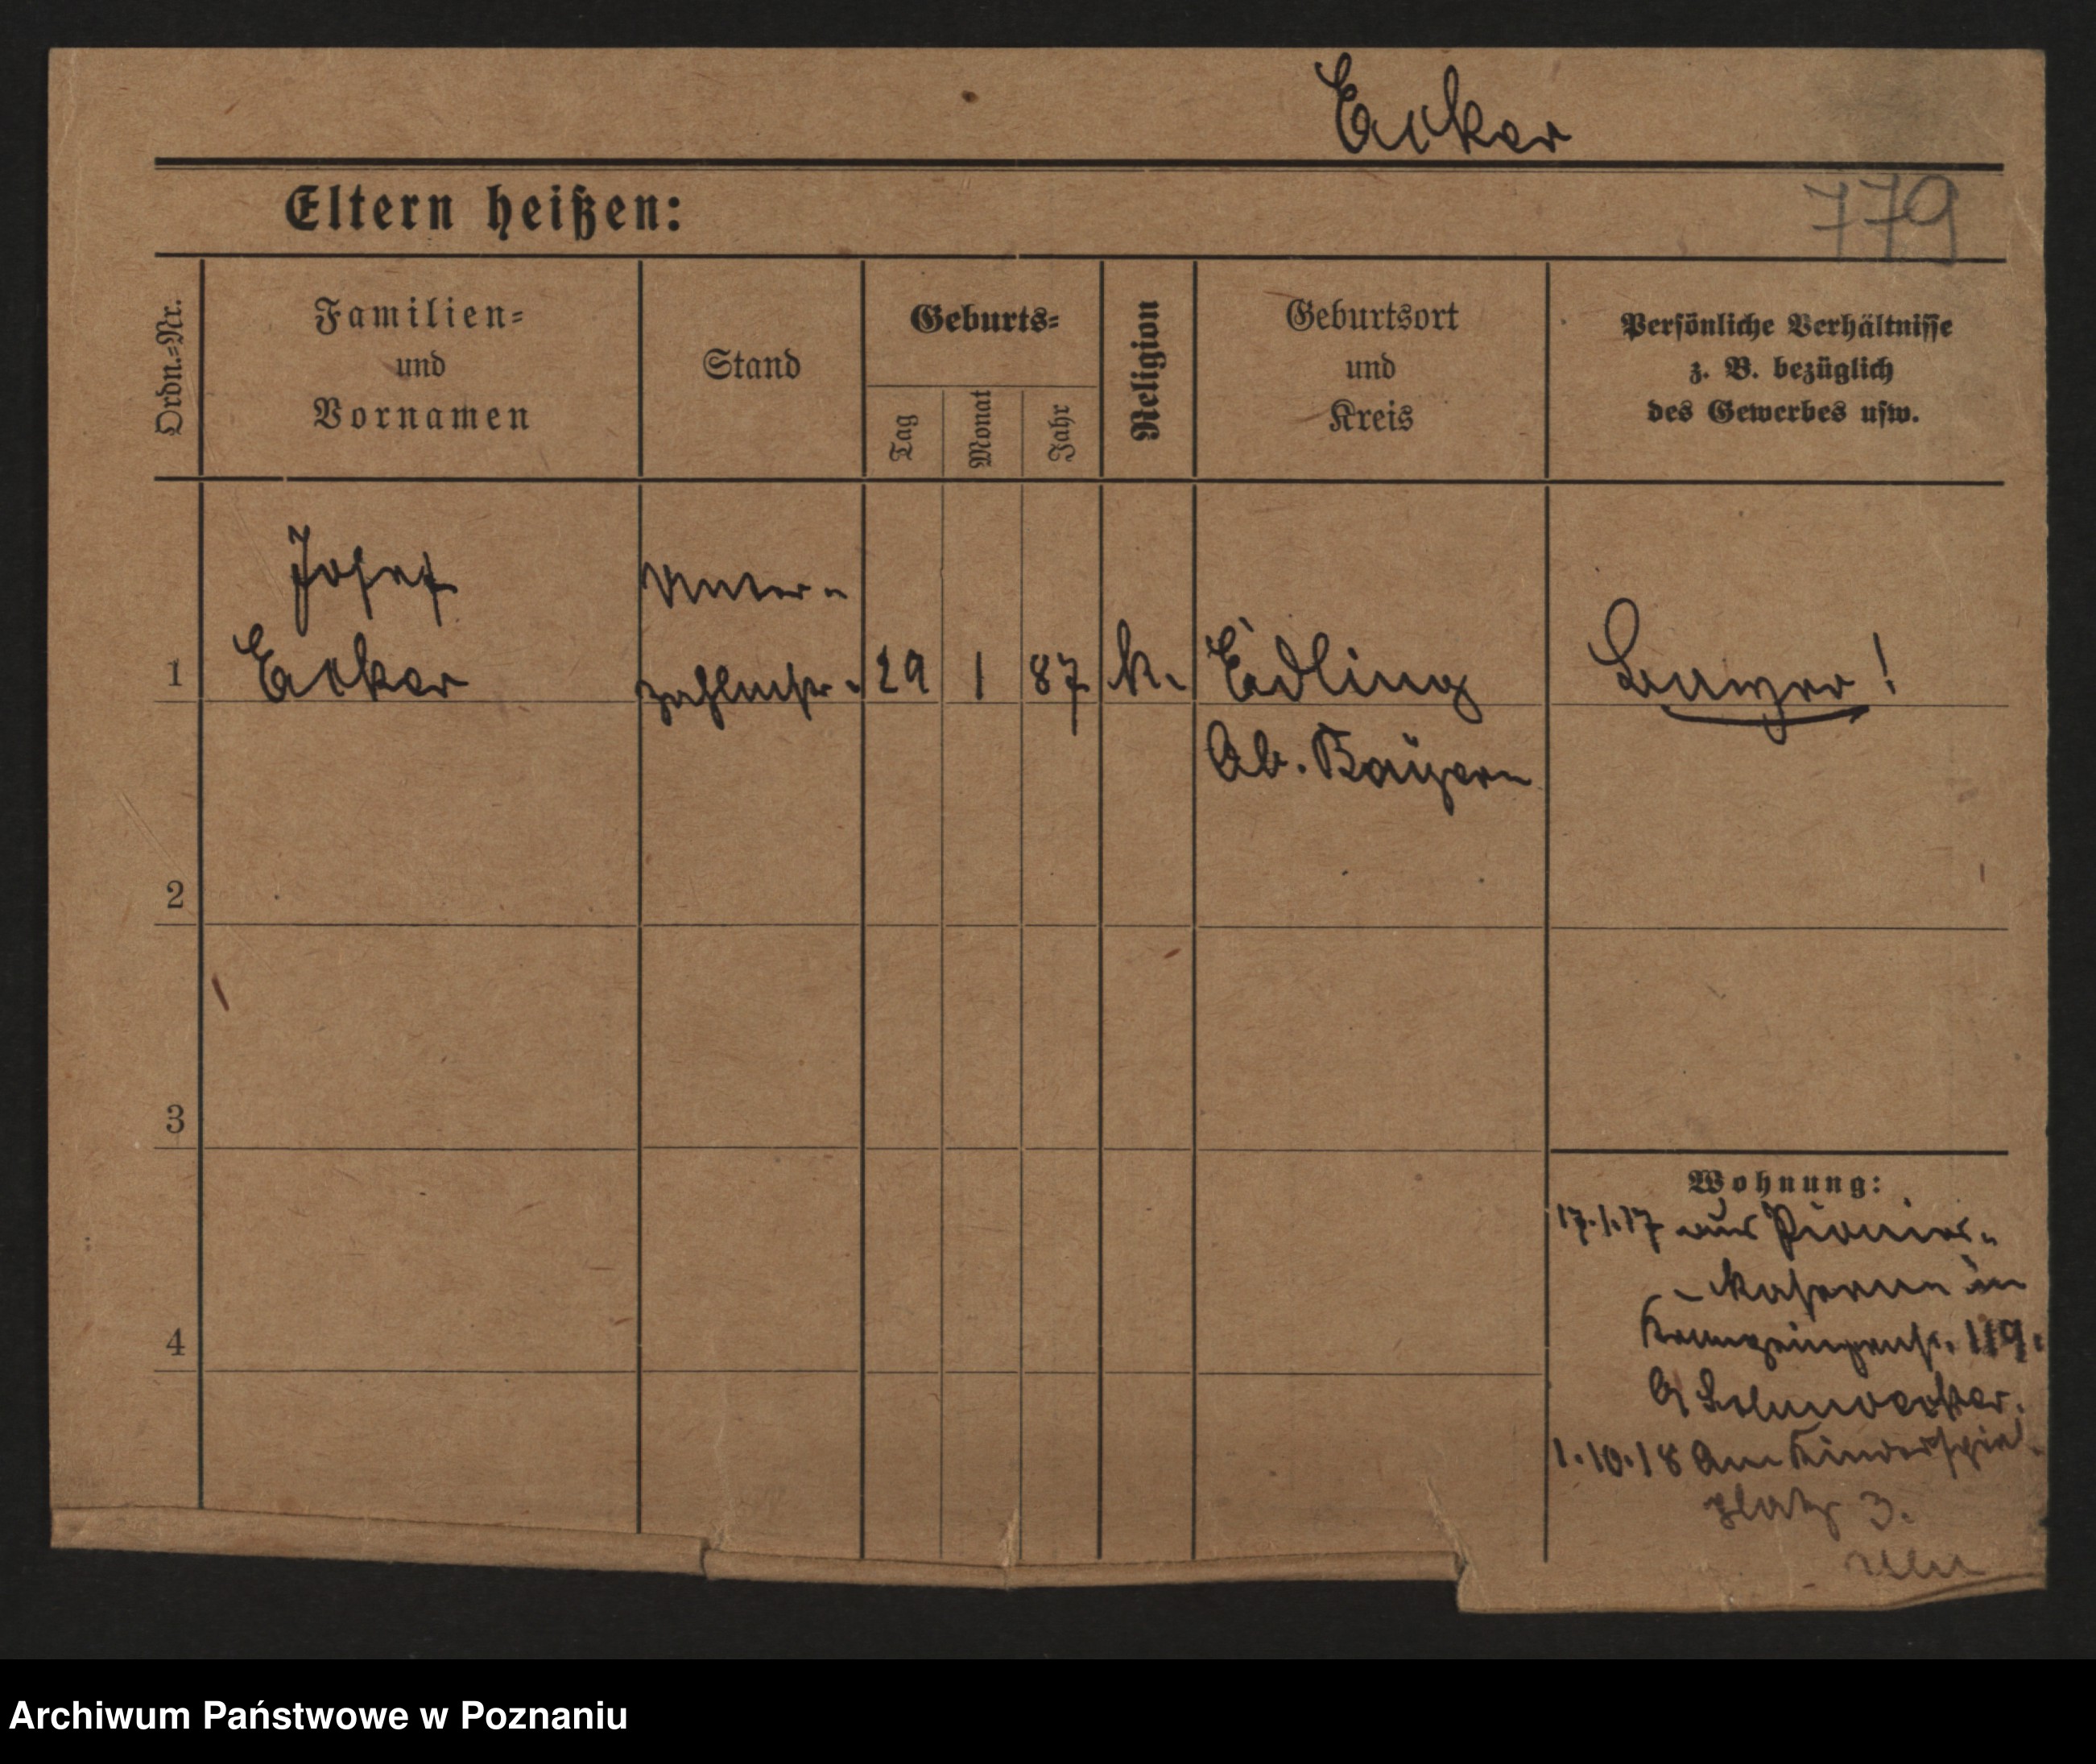 Ecker
Eltern heißen:
779
Ordn.=Nr.
Familien=
und
Vornamen
Stand
Geburts=
Tag
Monat
Jahr
Religion
Geburtsort
und
Kreis
Persönliche Verhältnisse
z. B. bezüglich
des Gewerbes usw.
Josef
Unter-
1
Ecker
zahlmstr.
29
1
87
k.
Edling
Ob. Bayern
2
3
4
Wohnung:
17.1.17 aus Pionier-
Kaserne in
119.
1.10.18 Am Kinderspiel
platz 3.
Archiwum Państwowe w Poznaniu